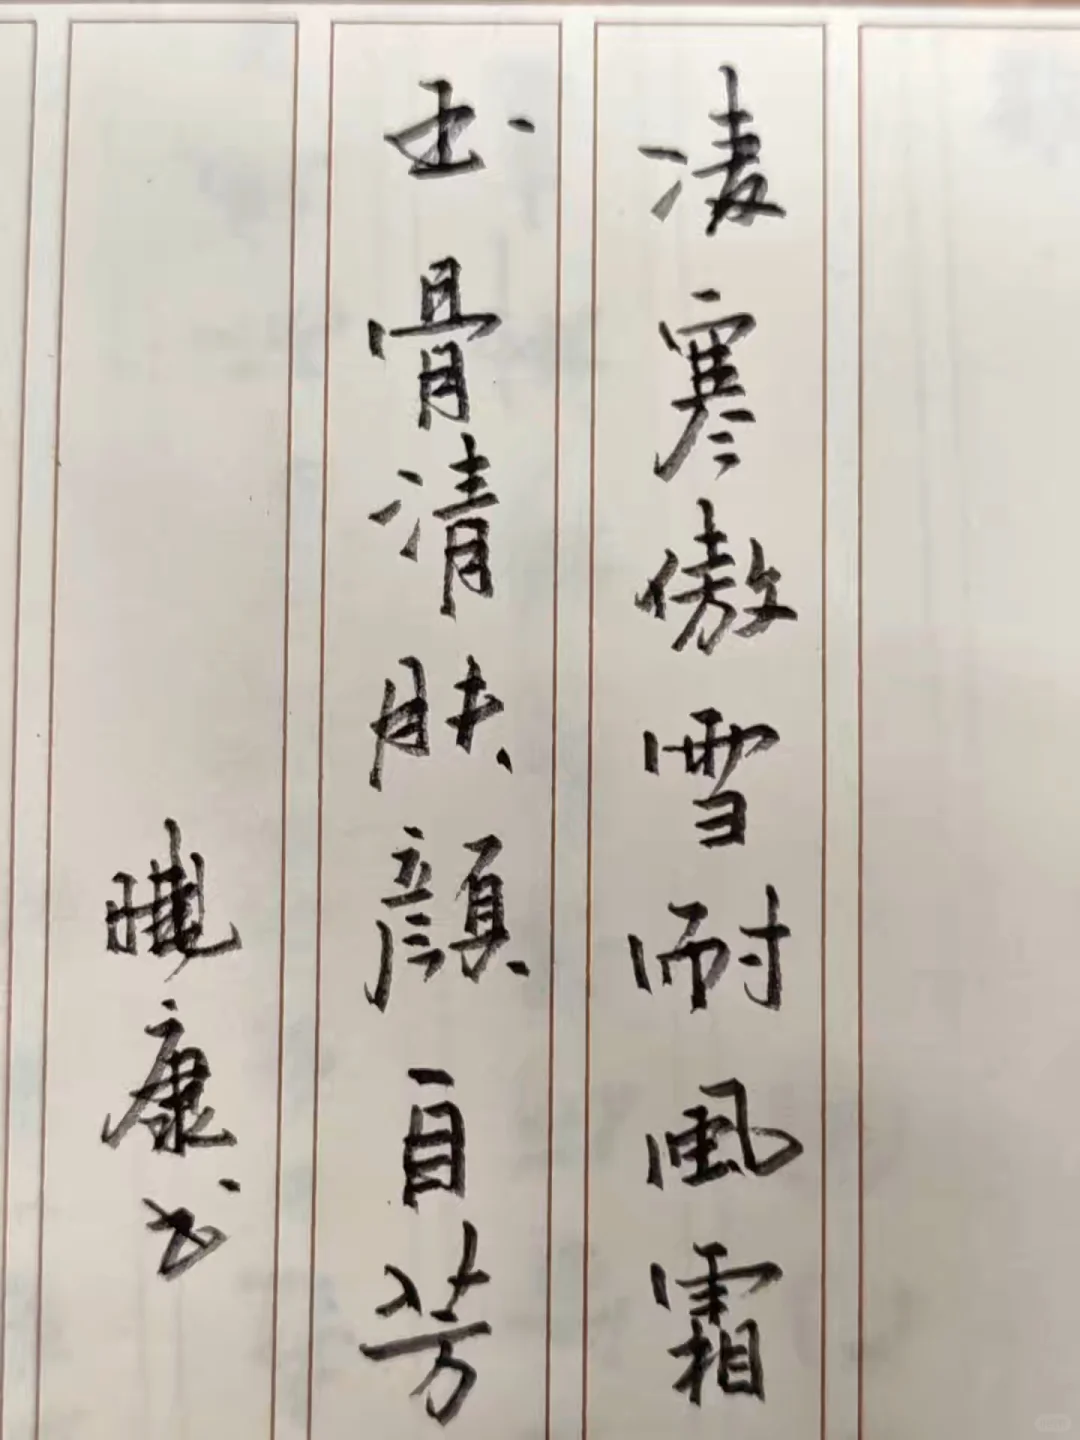 凌寒傲雪耐風霜
玉骨清肤顔自芳
曦康书